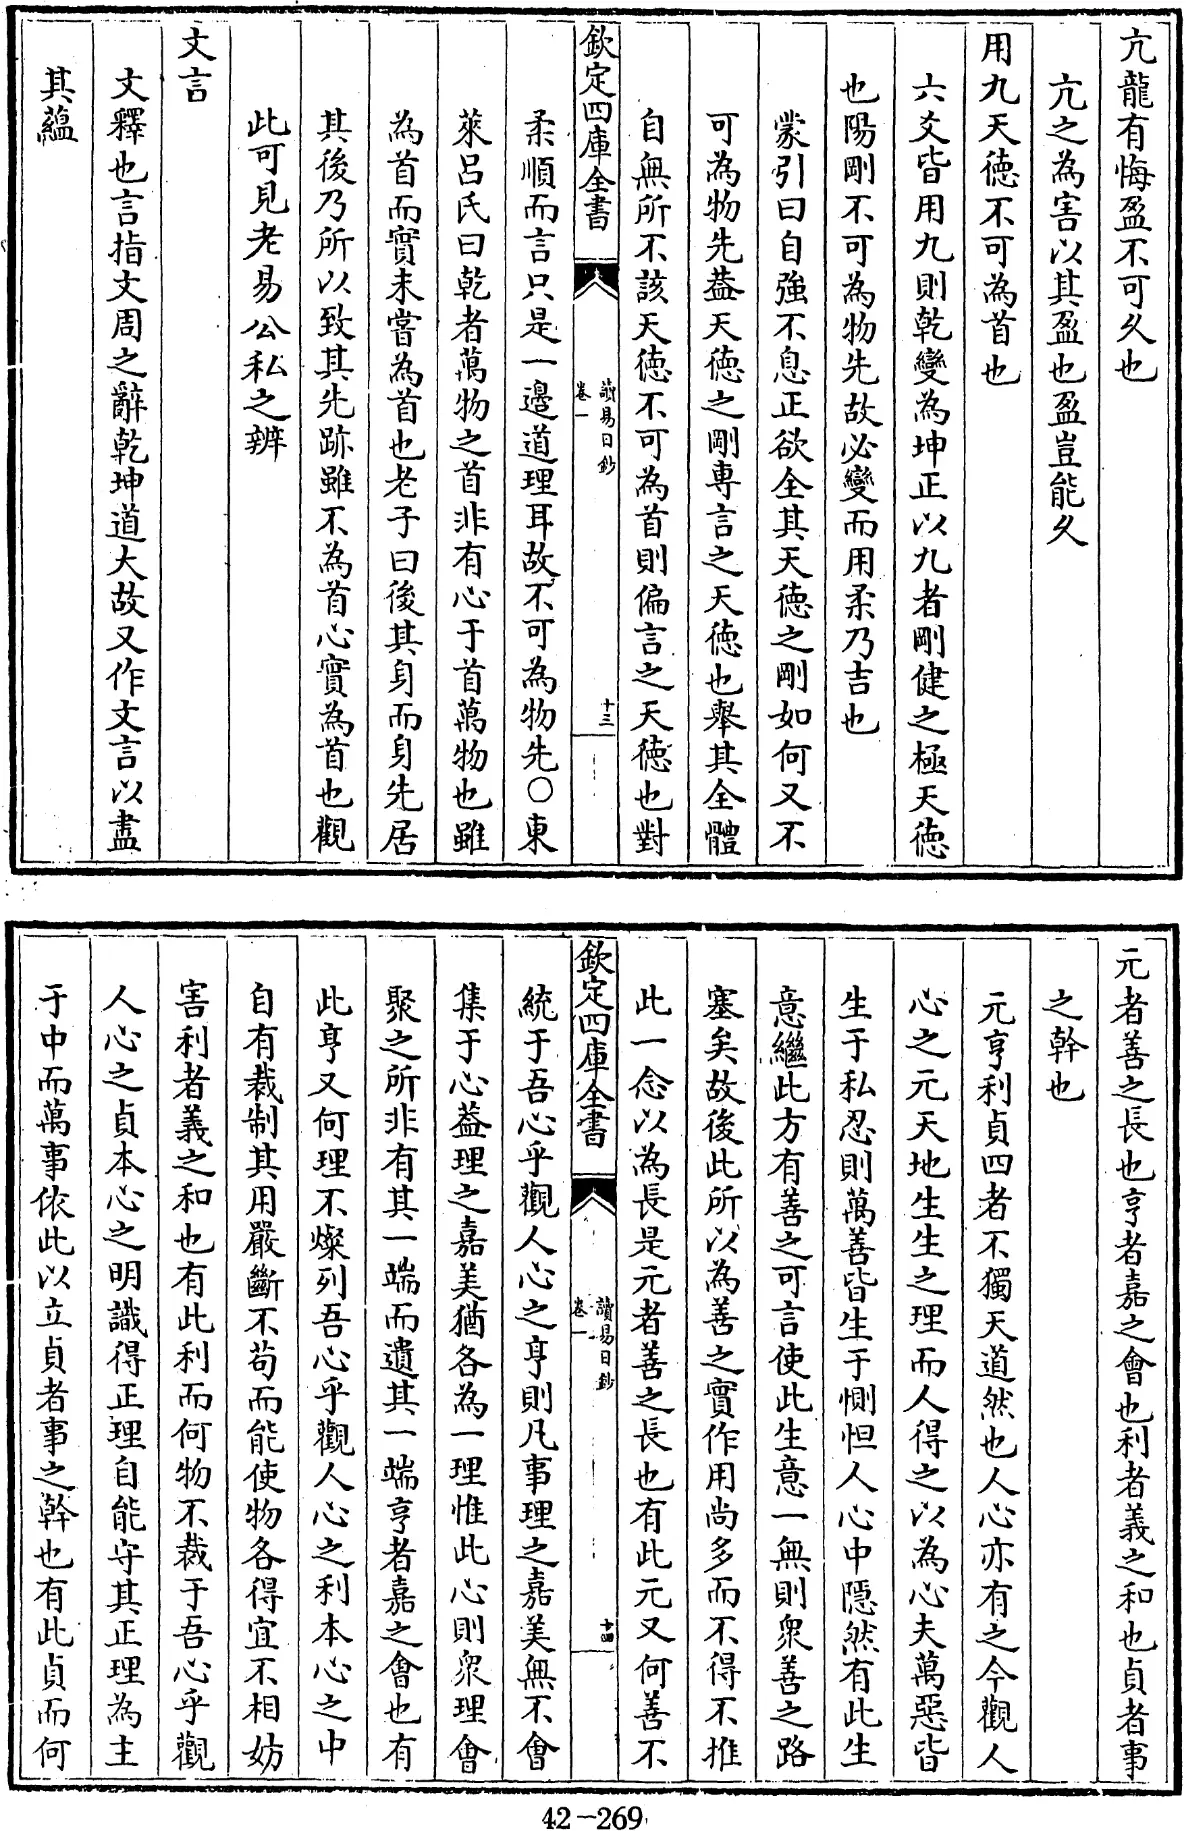 亢龍有悔盈不可久也
亢之為害以其盈也盈豈能久
用九天德不可為首也
六爻皆用九則乾變為坤正以九者剛健之極天德
也陽剛不可為物先故必變而用柔乃吉也
蒙引曰自強不息正欲全其天德之剛如何又不
可為物先蓋天德之剛專言之天德也舉其全體
自無所不該天德不可為首則偏言之天德也對
欽定四庫全書
讀易日鈔
卷一
十三
柔順而言只是一邊道理耳故不可為物先○東
萊呂氏曰乾者萬物之首非有心于首萬物也雖
為首而實未嘗為首也老子曰後其身而身先居
其後乃所以致其先跡雖不為首心實為首也觀
此可見老易公私之辨
文言
文釋也言指文周之辭乾坤道大故又作文言以盡
其蘊
元者善之長也亨者嘉之會也利者義之和也貞者事
之幹也
元亨利貞四者不獨天道然也人心亦有之今觀人
心之元天地生生之理而人得之以為心夫萬惡皆
生于私忍則萬善皆生于惻怛人心中隱然有此生
意繼此方有善之可言使此生意一無則衆善之路
塞矣故後此所以為善之實作用尚多而不得不推
此一念以為長是元者善之長也有此元又何善不
欽定四庫全書
讀易日鈔
卷一
十四
統于吾心乎觀人心之亨則凡事理之嘉美無不會
集于心蓋理之嘉美猶各為一理惟此心則衆理會
聚之所非有其一端而遺其一端亨者嘉之會也有
此亨又何理不燦列吾心乎觀人心之利本心之中
自有裁制其用嚴斷不苟而能使物各得宜不相妨
害利者義之和也有此利而何物不裁于吾心乎觀
人心之貞本心之明識得正理自能守其正理為主
于中而萬事依此以立貞者事之幹也有此貞而何
42-269